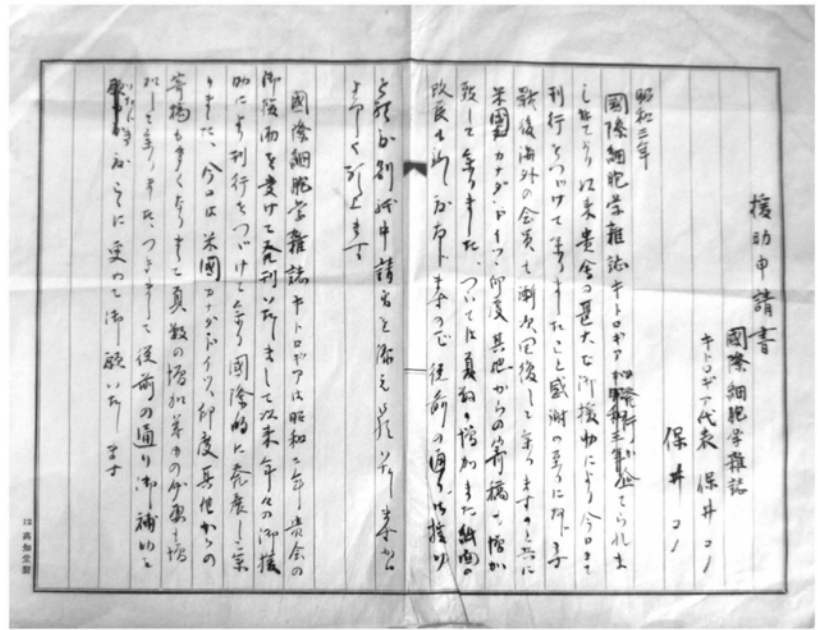 援助申請書
國際細胞学雑誌
キトロギア代表 保井コノ
保井コノ
昭和三年
國際細胞学雑誌キトロギアが企てられま
してより以来貴会の甚大な御援助により今日まで
刊行をつづけて参りましたこと感謝の至りに
戦後海外の会員も漸次回復して参りますと共に
米國カナダドイツ、印度其他からの寄稿も増加
致して参りました、ついては頁数の増加また紙面の
改良も 従前の通り御援助
別紙申請書を添え
よろしく
國際細胞学雑誌キトロギアは昭和 年貴会の
御援助を受けて発刊いたしまして以来年々の御援
助により刊行をつづけて参り國際的に発展し参
りました、今日は米國カナダドイツ、印度其他からの
寄稿も多くなりまして頁数の増加 の必要も増
して参りました、つきまして従前の通り御補助を
いただき
御願いたします
12 高知堂製